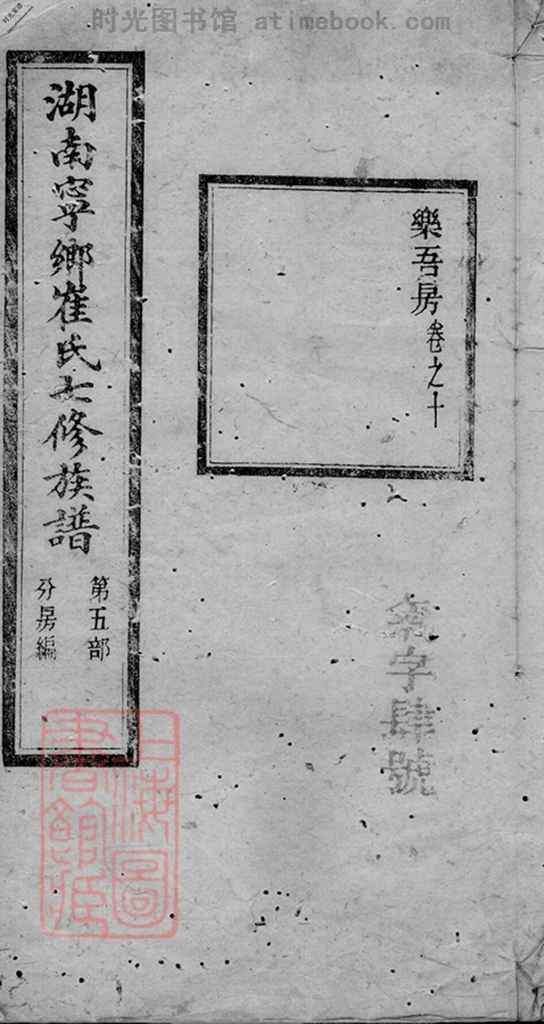 时光图书馆 atimebook.com
樂吾房卷之十
湖南寧鄉崔氏七修族譜
第五部
分房編
字肆號
上海圖
書館藏